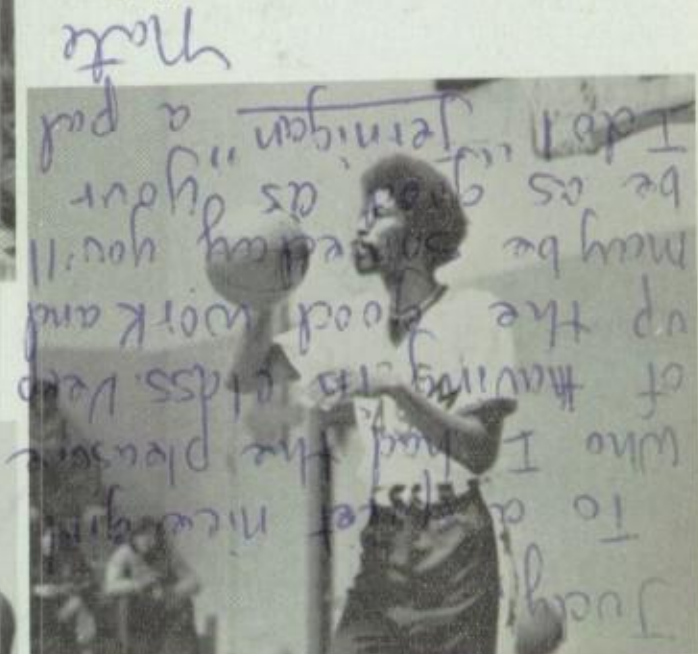 To a sweet nice girl
who I had the pleasure
of having in class. Keep
up the good work and
maybe someday you'll
be as good as your
Idol "Jernigan" a pal
Nate